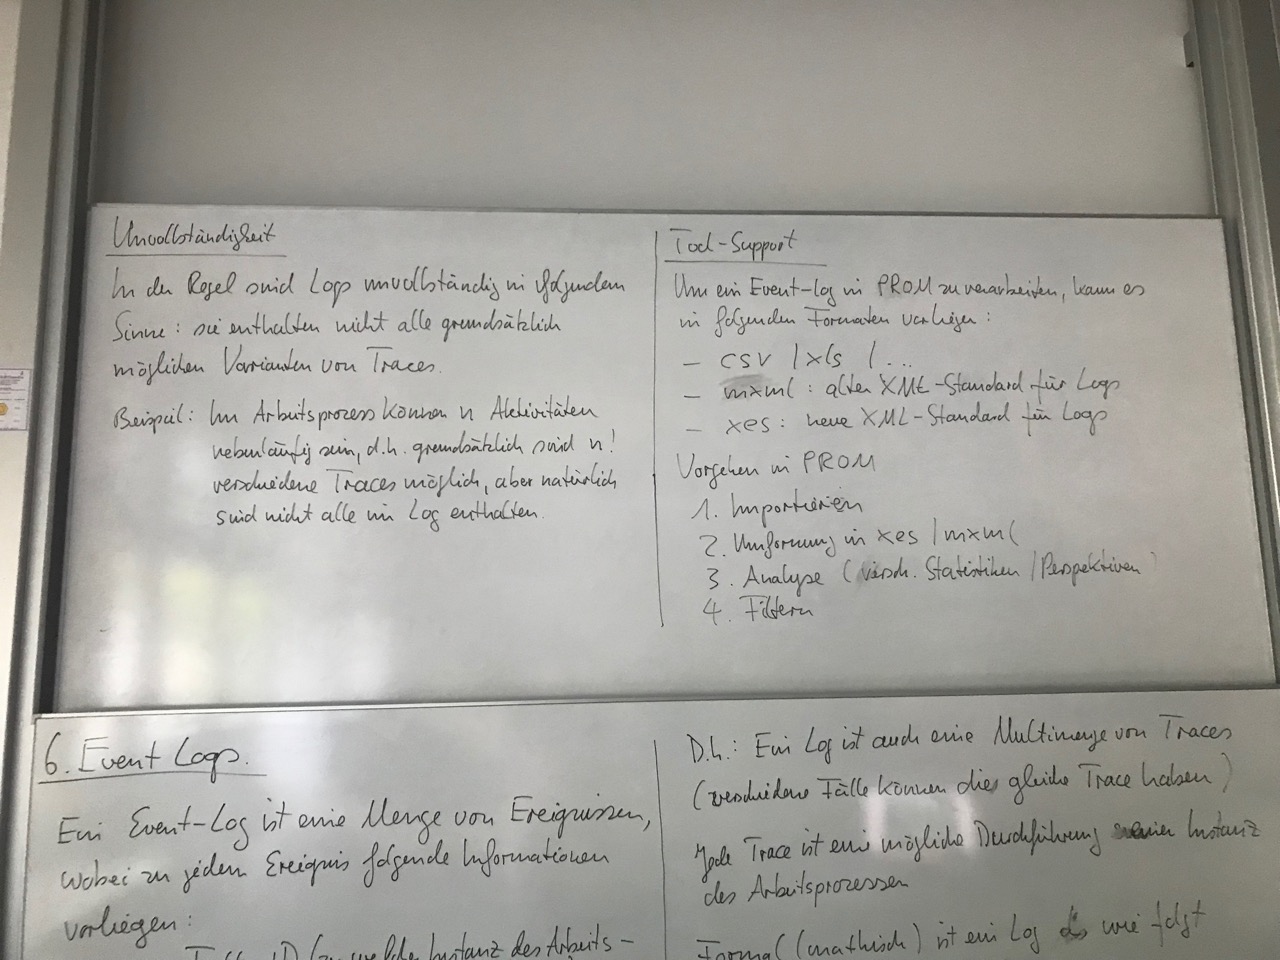 Unvollständigkeit
In der Regel sind Logs unvollständig in folgendem
Sinne: sie enthalten nicht alle grundsätzlich
möglichen Varianten von Traces.
Beispiel: Im Arbeitsprozess können n Aktivitäten
nebenläufig sein, d.h. grundsätzlich sind n!
verschiedene Traces möglich, aber natürlich
sind nicht alle im Log enthalten.
Tool-Support
Um ein Event-Log in PROM zu verarbeiten, kann es
in folgenden Formaten vorliegen:
- csv / xls / ...
- mxml: alter XML-Standard für Logs
- xes: neue XML-Standard für Logs
Vorgehen in PROM
1. Importieren
2. Umformung in xes / mxml
3. Analyse (versch. Statistiken / Perspektiven)
4. Filtern
6. Event Logs.
Ein Event-Log ist eine Menge von Ereignissen,
wobei zu jedem Ereignis folgende Informationen
vorliegen:
(zu welcher Instanz des Arbeits-
D.h.: Ein Log ist auch eine Multimenge von Traces
(verschiedene Fälle können die gleiche Trace haben)
Jede Trace ist eine mögliche Durchführung einer Instanz
des Arbeitsprozessen
Formal (mathisch) ist ein Log wie folgt